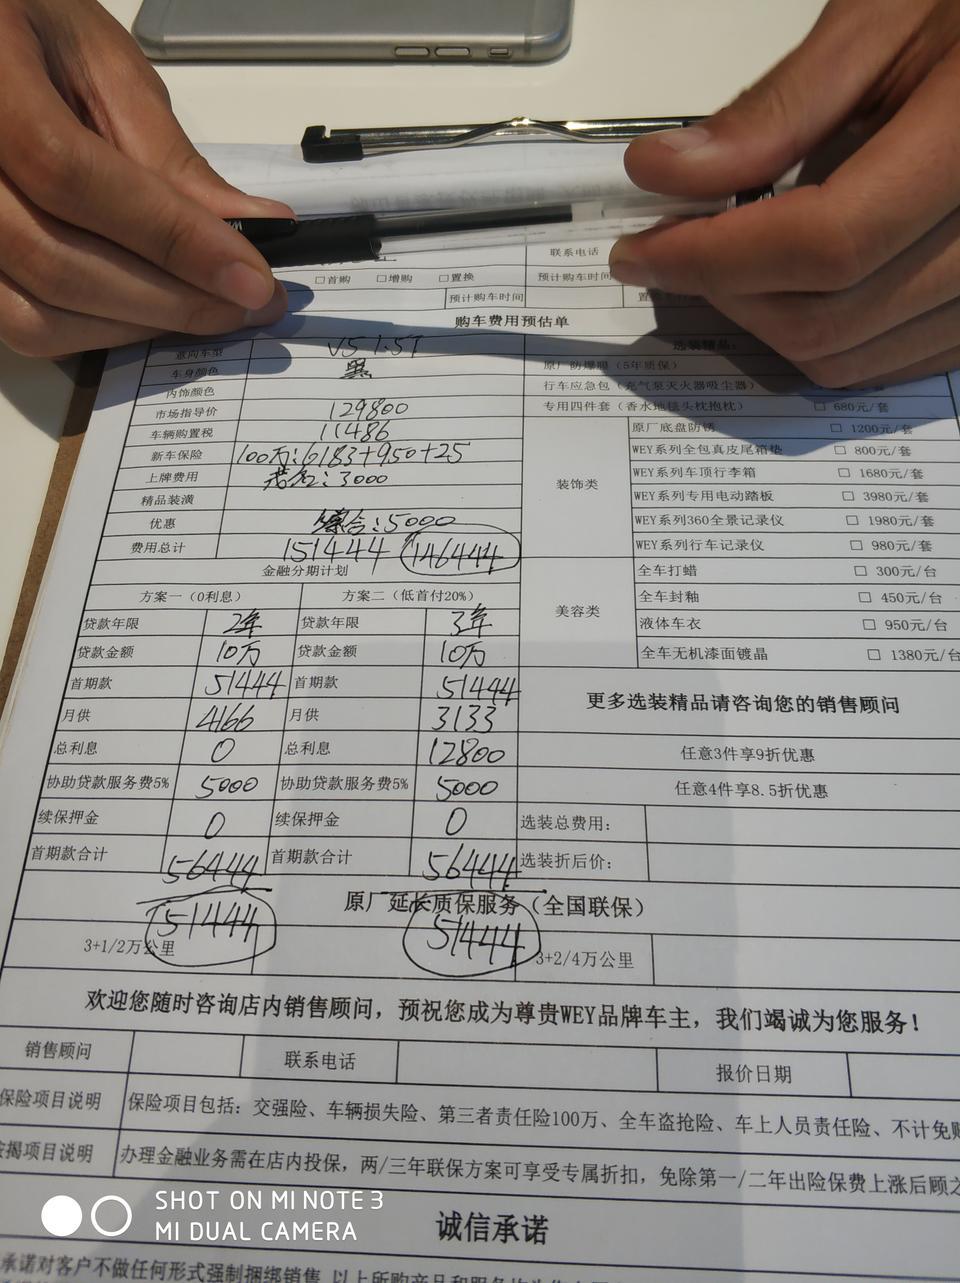 联系电话
□首购 □增购 □置换 预计购车时间
预计购车时间
购车费用预估单
意向车型 V5 1.5T 选装精品:
车身颜色 黑 原厂防爆膜(5年质保)
内饰颜色 行车应急包(充气泵灭火器吸尘器)
市场指导价 129800 专用四件套(香水地毯头枕抱枕) □ 680元/套
车辆购置税 11486 原厂底盘防锈 □ 1200元/套
新车保险 100万:6183+950+25 WEY系列全包真皮尾箱垫 □ 800元/套
上牌费用 3000 WEY系列车顶行李箱 □ 1680元/套
装饰类
精品装潢 WEY系列专用电动踏板 □ 3980元/套
优惠 综合:5000 WEY系列360全景记录仪 □ 1980元/套
费用总计 151444 146444 WEY系列行车记录仪 □ 980元/套
金融分期计划 全车打蜡 □ 300元/台
方案一(0利息) 方案二(低首付20%) 美容类 全车封釉 □ 450元/台
贷款年限 2年 贷款年限 3年 液体车衣 □ 950元/台
贷款金额 10万 贷款金额 10万 全车无机漆面镀晶 □ 1380元/台
首期款 51444 首期款 51444 更多选装精品请咨询您的销售顾问
月供 4166 月供 3133
总利息 0 总利息 12800 任意3件享9折优惠
协助贷款服务费5% 5000 协助贷款服务费5% 5000 任意4件享8.5折优惠
续保押金 0 续保押金 0 选装总费用:
首期款合计 56444 首期款合计 56444 选装折后价:
原厂延长质保服务(全国联保)
51444 51444
3+1/2万公里 3+2/4万公里
欢迎您随时咨询店内销售顾问，预祝您成为尊贵WEY品牌车主，我们竭诚为您服务！
销售顾问 联系电话 报价日期
保险项目说明 保险项目包括：交强险、车辆损失险、第三者责任险100万、全车盗抢险、车上人员责任险、不计免赔
按揭项目说明 办理金融业务需在店内投保，两/三年联保方案可享受专属折扣，免除第一/二年出险保费上涨后顾之
SHOT ON MI NOTE 3
MI DUAL CAMERA
诚信承诺
承诺对客户不做任何形式强制捆绑销售